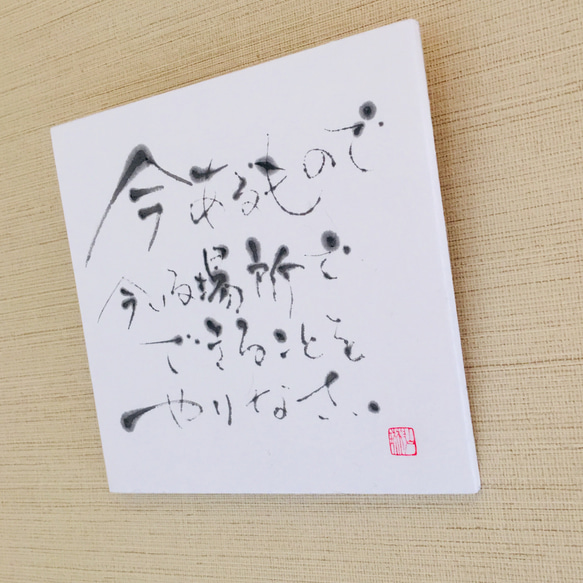 今あるもので
今いる場所で
できることを
やりなさい